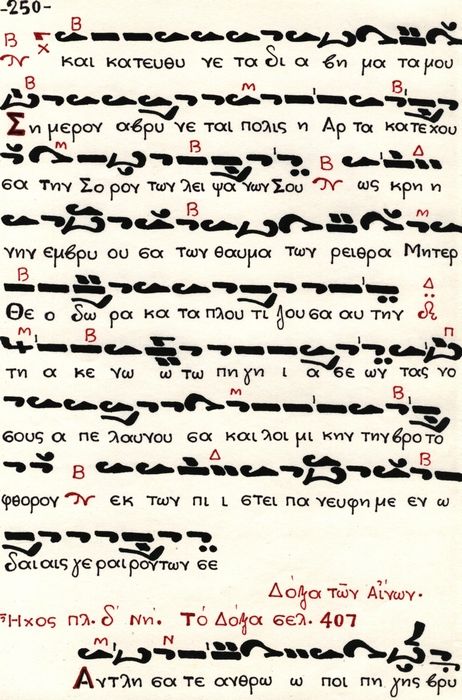 -250-
και κατευθυ νε τα δι α βη μα τα μου
Ση μερον αβρυ νε ται πολις η Αρ τα κατεχου
σα την Σο ρον των λει ψα νων Σου ως κρη η
νην εμβρυ ου σα των θαυμα των ρειθρα Μητερ
Θε ο δω ρα κα τα πλου τι ζου σα αυ την
τη α κε νω ω τω πηγη ι α σε ων τας νο
σους α πε λαυνου σα και λοι μι κην την βρο το
φθορον εκ των πι ι στει πα νευφη με εν ω
δαι αις γε ραι ροντων σε
Δόξα τῶν Αἴνων.
Ἦχος πλ. δ΄ Νη. Τό Δόξα σελ. 407
Αντλη σα τε ανθρω ω ποι πη γης βρυ